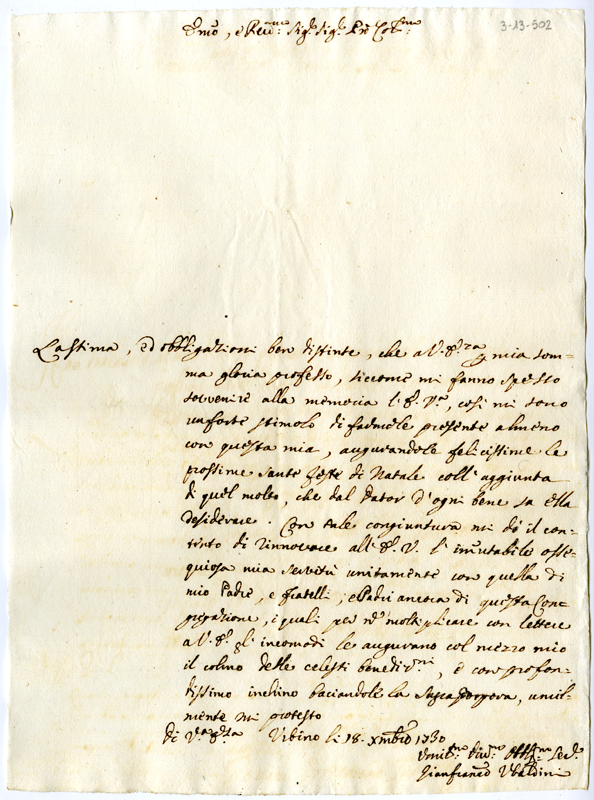 Emo, e Reumo: Sigr. Sigr. Prōn Colmo:
3-13-502
La stima, ed obbligazioni ben distinte, che a V. Em.za p mia som=
ma gloria professo, siccome mi fanno spesso
sovvenire alla memoria l'Em. Va, così mi sono
un forte stimolo di farmele presente almeno
con questa mia, augurandole felicissime le
prossime sante feste di Natale coll'aggiunta
di quel molto, che dal Dator d'ogni bene sa ella
desiderare. Con tale congiuntura mi dò il con=
tento di rinnovare all'Em. V. l'imutabile osse=
quiosa mia servitù unitamente con quella di
mio Padre, e fratelli, e Padri ancora di questa Con=
gregazione, i quali per nō moltiplicare con lettere
a V. Em. gl'incomodi le augurano col mezzo mio
il colmo delle celesti benediz.ni, e con profon=
dissimo inchino baciandole la Sagra Porpora, umil=
mente mi protesto
Di V.a Em.za Urbino li 18. Xmbre 1730
Umilmo: Divmo: Obblmo: Serv.
Gianfranco Ubaldini